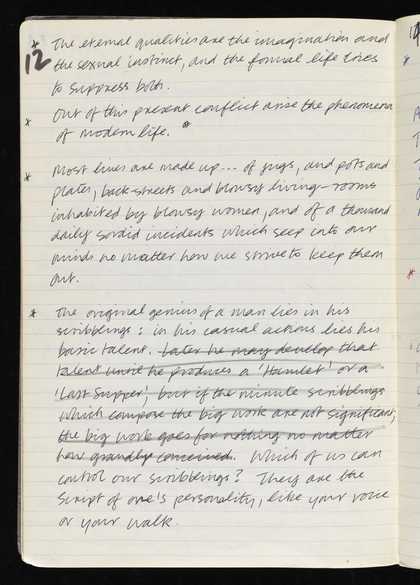 12
* The eternal qualities are the imagination and
the sexual instinct, and the formal life tries
to suppress both.
* Out of this present conflict arise the phenomena
of modern life. *
* Most lives are made up... of jugs, and pots and
plates, back-streets and blowsy living-rooms
inhabited by blowsy women, and of a thousand
daily sordid incidents which seep into our
minds no matter how we strive to keep them
out.
* The original genius of a man lies in his
scribblings: in his casual actions lies his
basic talent. Later he may develop that
talent until he produces a 'Hamlet' or a
'Last Supper', but if the minute scribblings
which compose the big work are not significant,
the big work goes for nothing no matter
how grandly conceived. Which of us can
control our scribblings? They are the
script of one's personality, like your voice
or your walk.